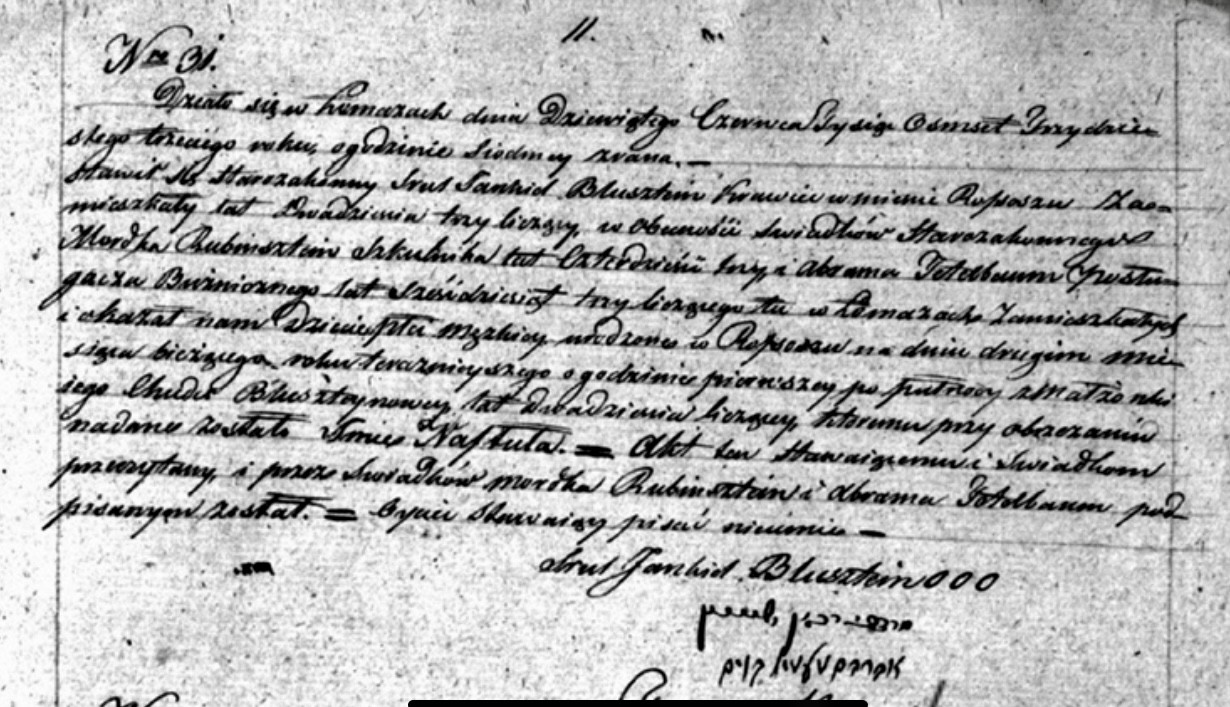 11.
Nro 31.
Działo się w Łomazach dnia Dziewiętego Czerwca Tysiąc Osmset Trzydzie-
stego trzeciego roku, o godzinie Siodmey zrana. —
Stawił się Starozakonny Srul Jankiel Blusztein Krawiec w mieście Rossoszu Za-
mieszkały lat Dwadzieścia trzy liczący, w obecności Swiadków Starozakonnego
Mordka Rubinsztein Szkulnika lat Czterdzieści trzy i Abrama Tetelbaum Posłu-
gacza Bużnicznego lat Sześćdziesiąt trzy liczącego tu w Łomazach Zamieszkałych
i okazał nam Dziecie płci męzkiey urodzone w Rossoszu na dniu drugim mie-
siąca bieżącego roku teraznieyszego o godzinie pierwszey po pułnocy z Małżonki
iego Chudes Blusztaynowey, lat dwadzieścia liczącey, któremu przy obrzezaniu
nadane zostało Imie Naftula. = Akt ten Stawaiącemu i Swiadkom
przeczytany, i przez Swiadków Mordka Rubinsztein i Abrama Tetelbaum pod-
pisanym został. = Oyciec Stawaiący pisać nieumie —
Srul Jankiel Blusztein OOO